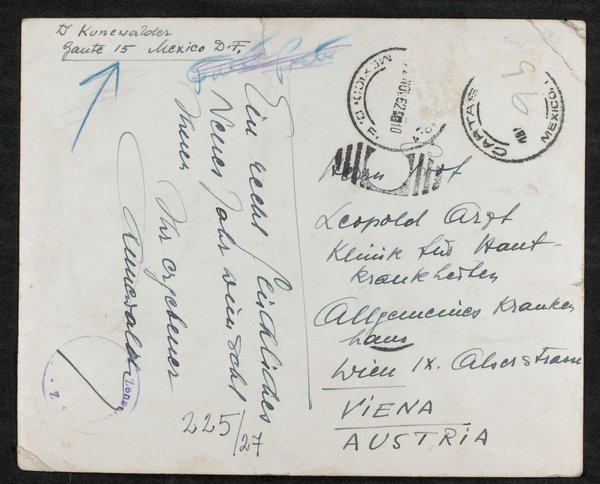 D Kunewälder
Gante 15 Mexico D.F.
MEXICO. D. F.
NOV. 52
CARTAS
MEXICO
Ein recht glückliches
Neues Jahr wünscht
Ihnen
Ihr ergebener
Kunewälder
Herrn Prof
Leopold Arzt
Klinik für Haut-
krankheiten
Allgemeines Kranken
haus
Wien IX. Alserstrasse
VIENA
AUSTRIA
225/27